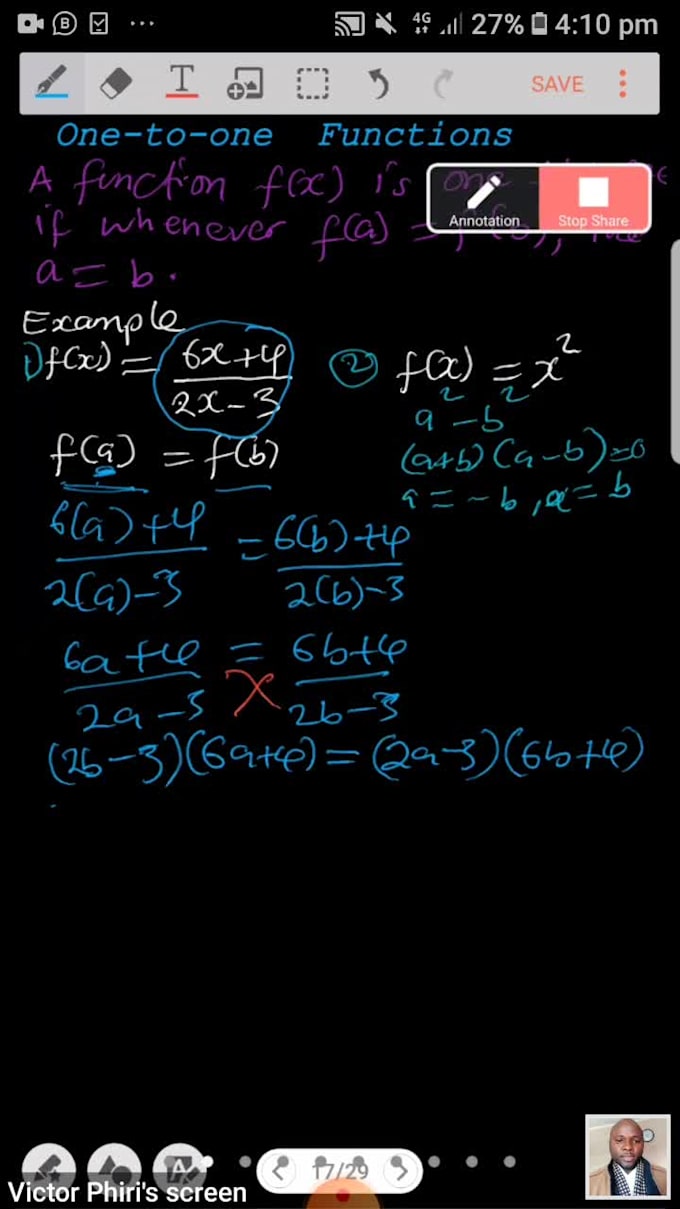 4G 27% 4:10 pm
T SAVE
One-to-one Functions
A function f(x) is one
Annotation Stop Share
if whenever f(a) =
a = b.
Example
1) f(x) = 6x+4 / 2x-3
f(a) = f(b)
6(a)+4 / 2(a)-3 = 6(b)+4 / 2(b)-3
6a+4 / 2a-3 = 6b+4 / 2b-3
(2b-3)(6a+4) = (2a-3)(6b+4)
2 f(x) = x²
a² - b²
(a+b)(a-b)=0
a = -b, a = b
17/29
Victor Phiri's screen